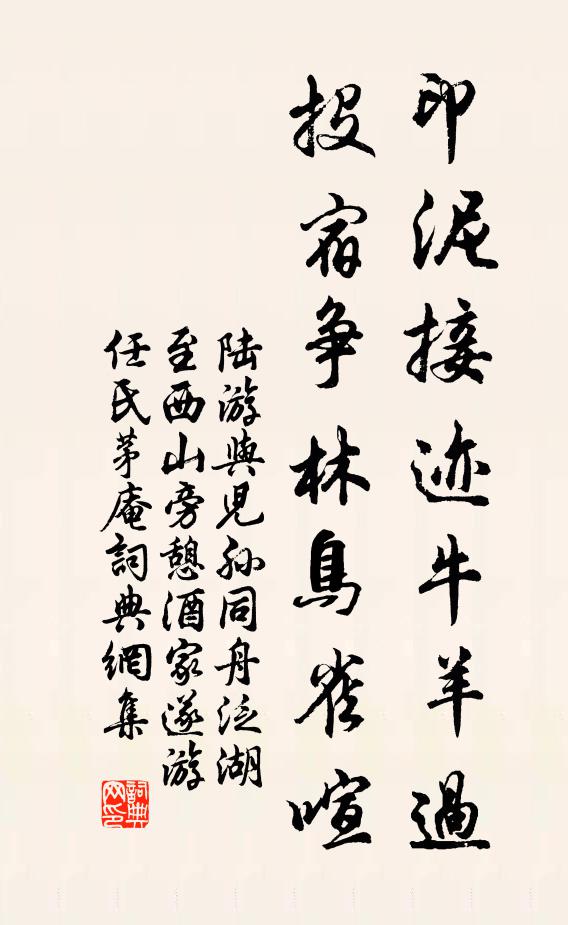 印泥接迹牛羊過
投宿争林鳥雀喧
陸游與児孫同舟泛湖
至西山旁憩酒家遂游
任氏茅庵詞典網集
詞典
网印